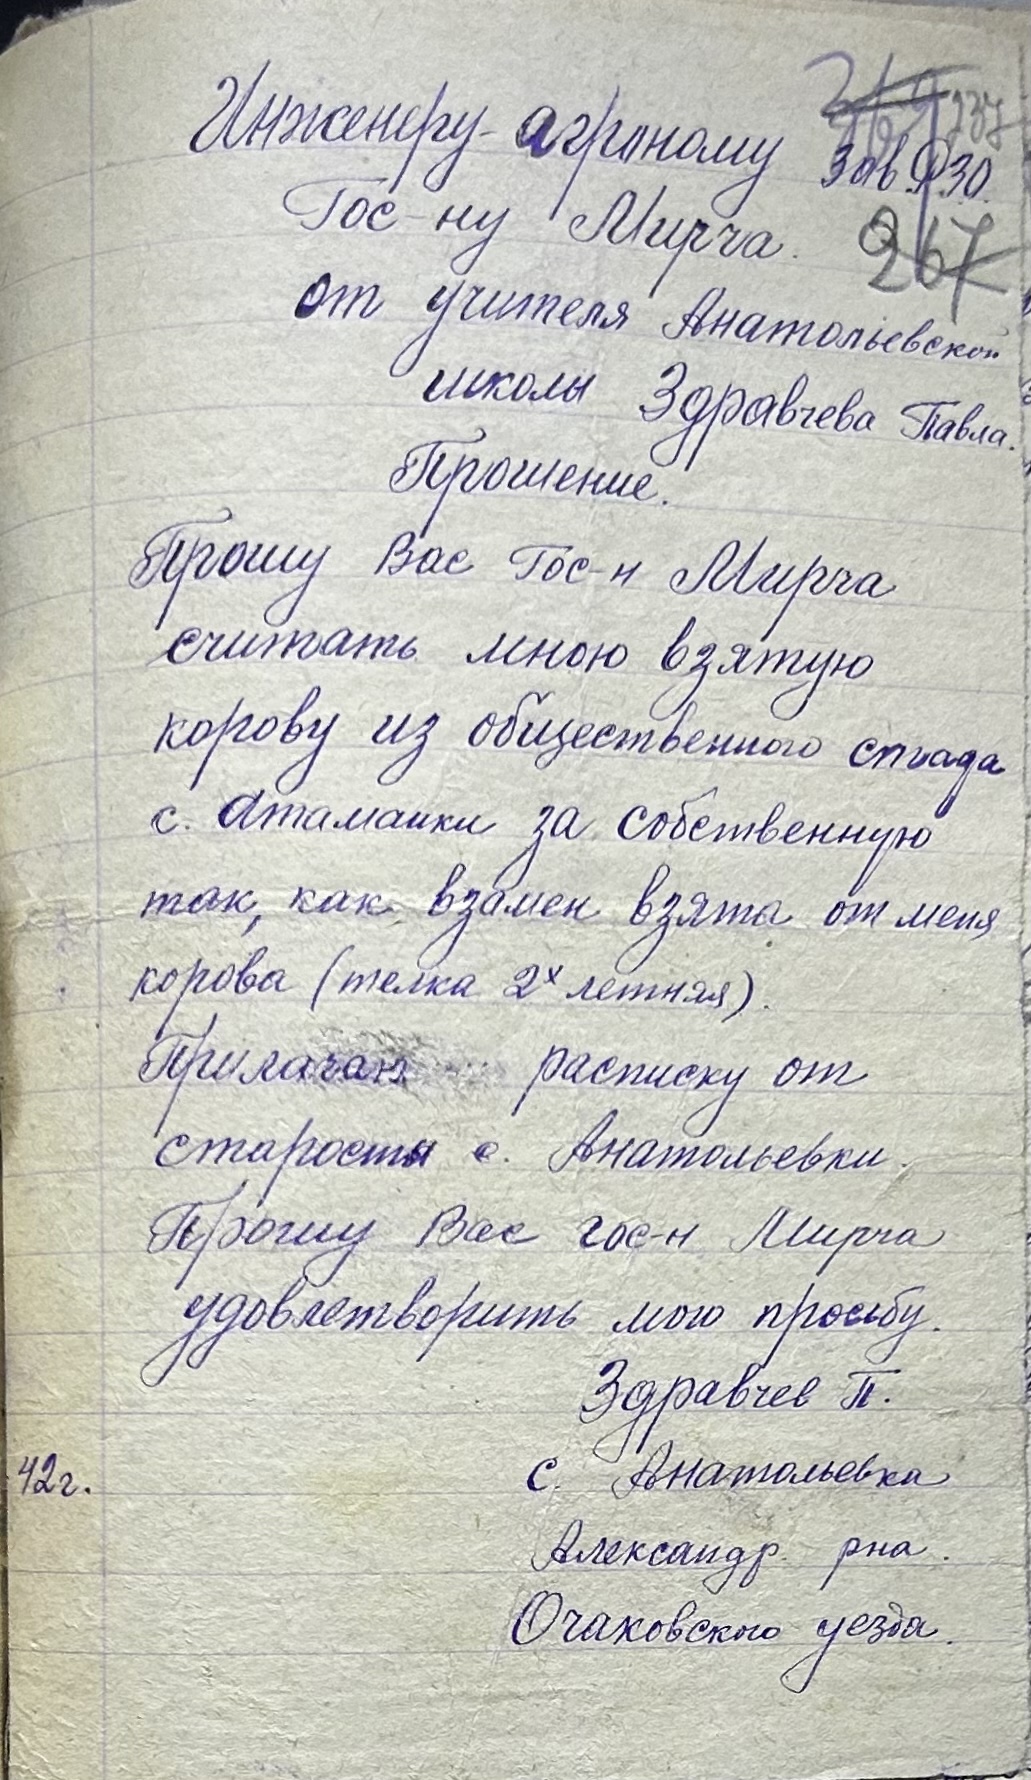 Инженеру-агроному Зав.Ф.З.О.
267
Гос-ну Мирча.
от учителя Анатольевской
школы Здравчева Павла.
Прошение.
Прошу Вас Гос-н Мирча
считать мною взятую
корову из общественного стада
с. Атаманки за собственную
так, как взамен взята от меня
корова (телка 2х летняя).
Прилагаю расписку от
старосты с. Анатольевки.
Прошу Вас гос-н Мирча
удовлетворить мою просьбу.
Здравчев П.
42г. с. Анатольевка
Александр. рна.
Очаковского уезда.